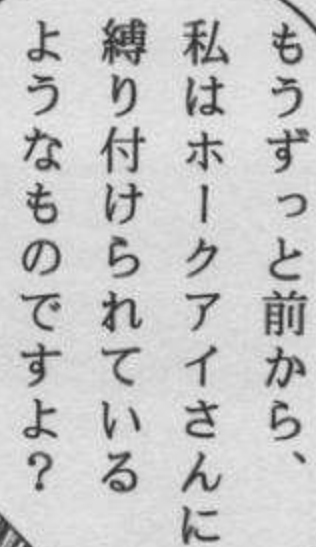 もうずっと前から、
私はホークアイさんに
縛り付けられている
ようなものですよ？